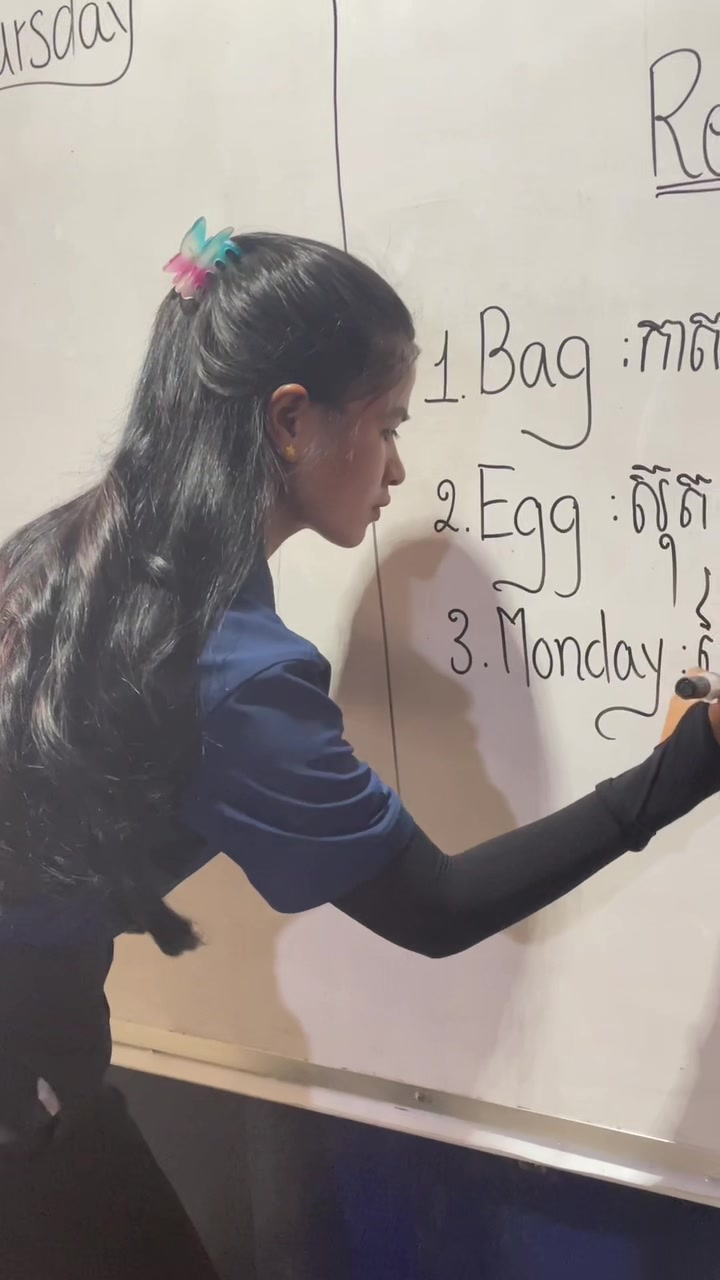 ursday
Re
1. Bag : កាត
2. Egg : ស៊ុត
3. Monday :